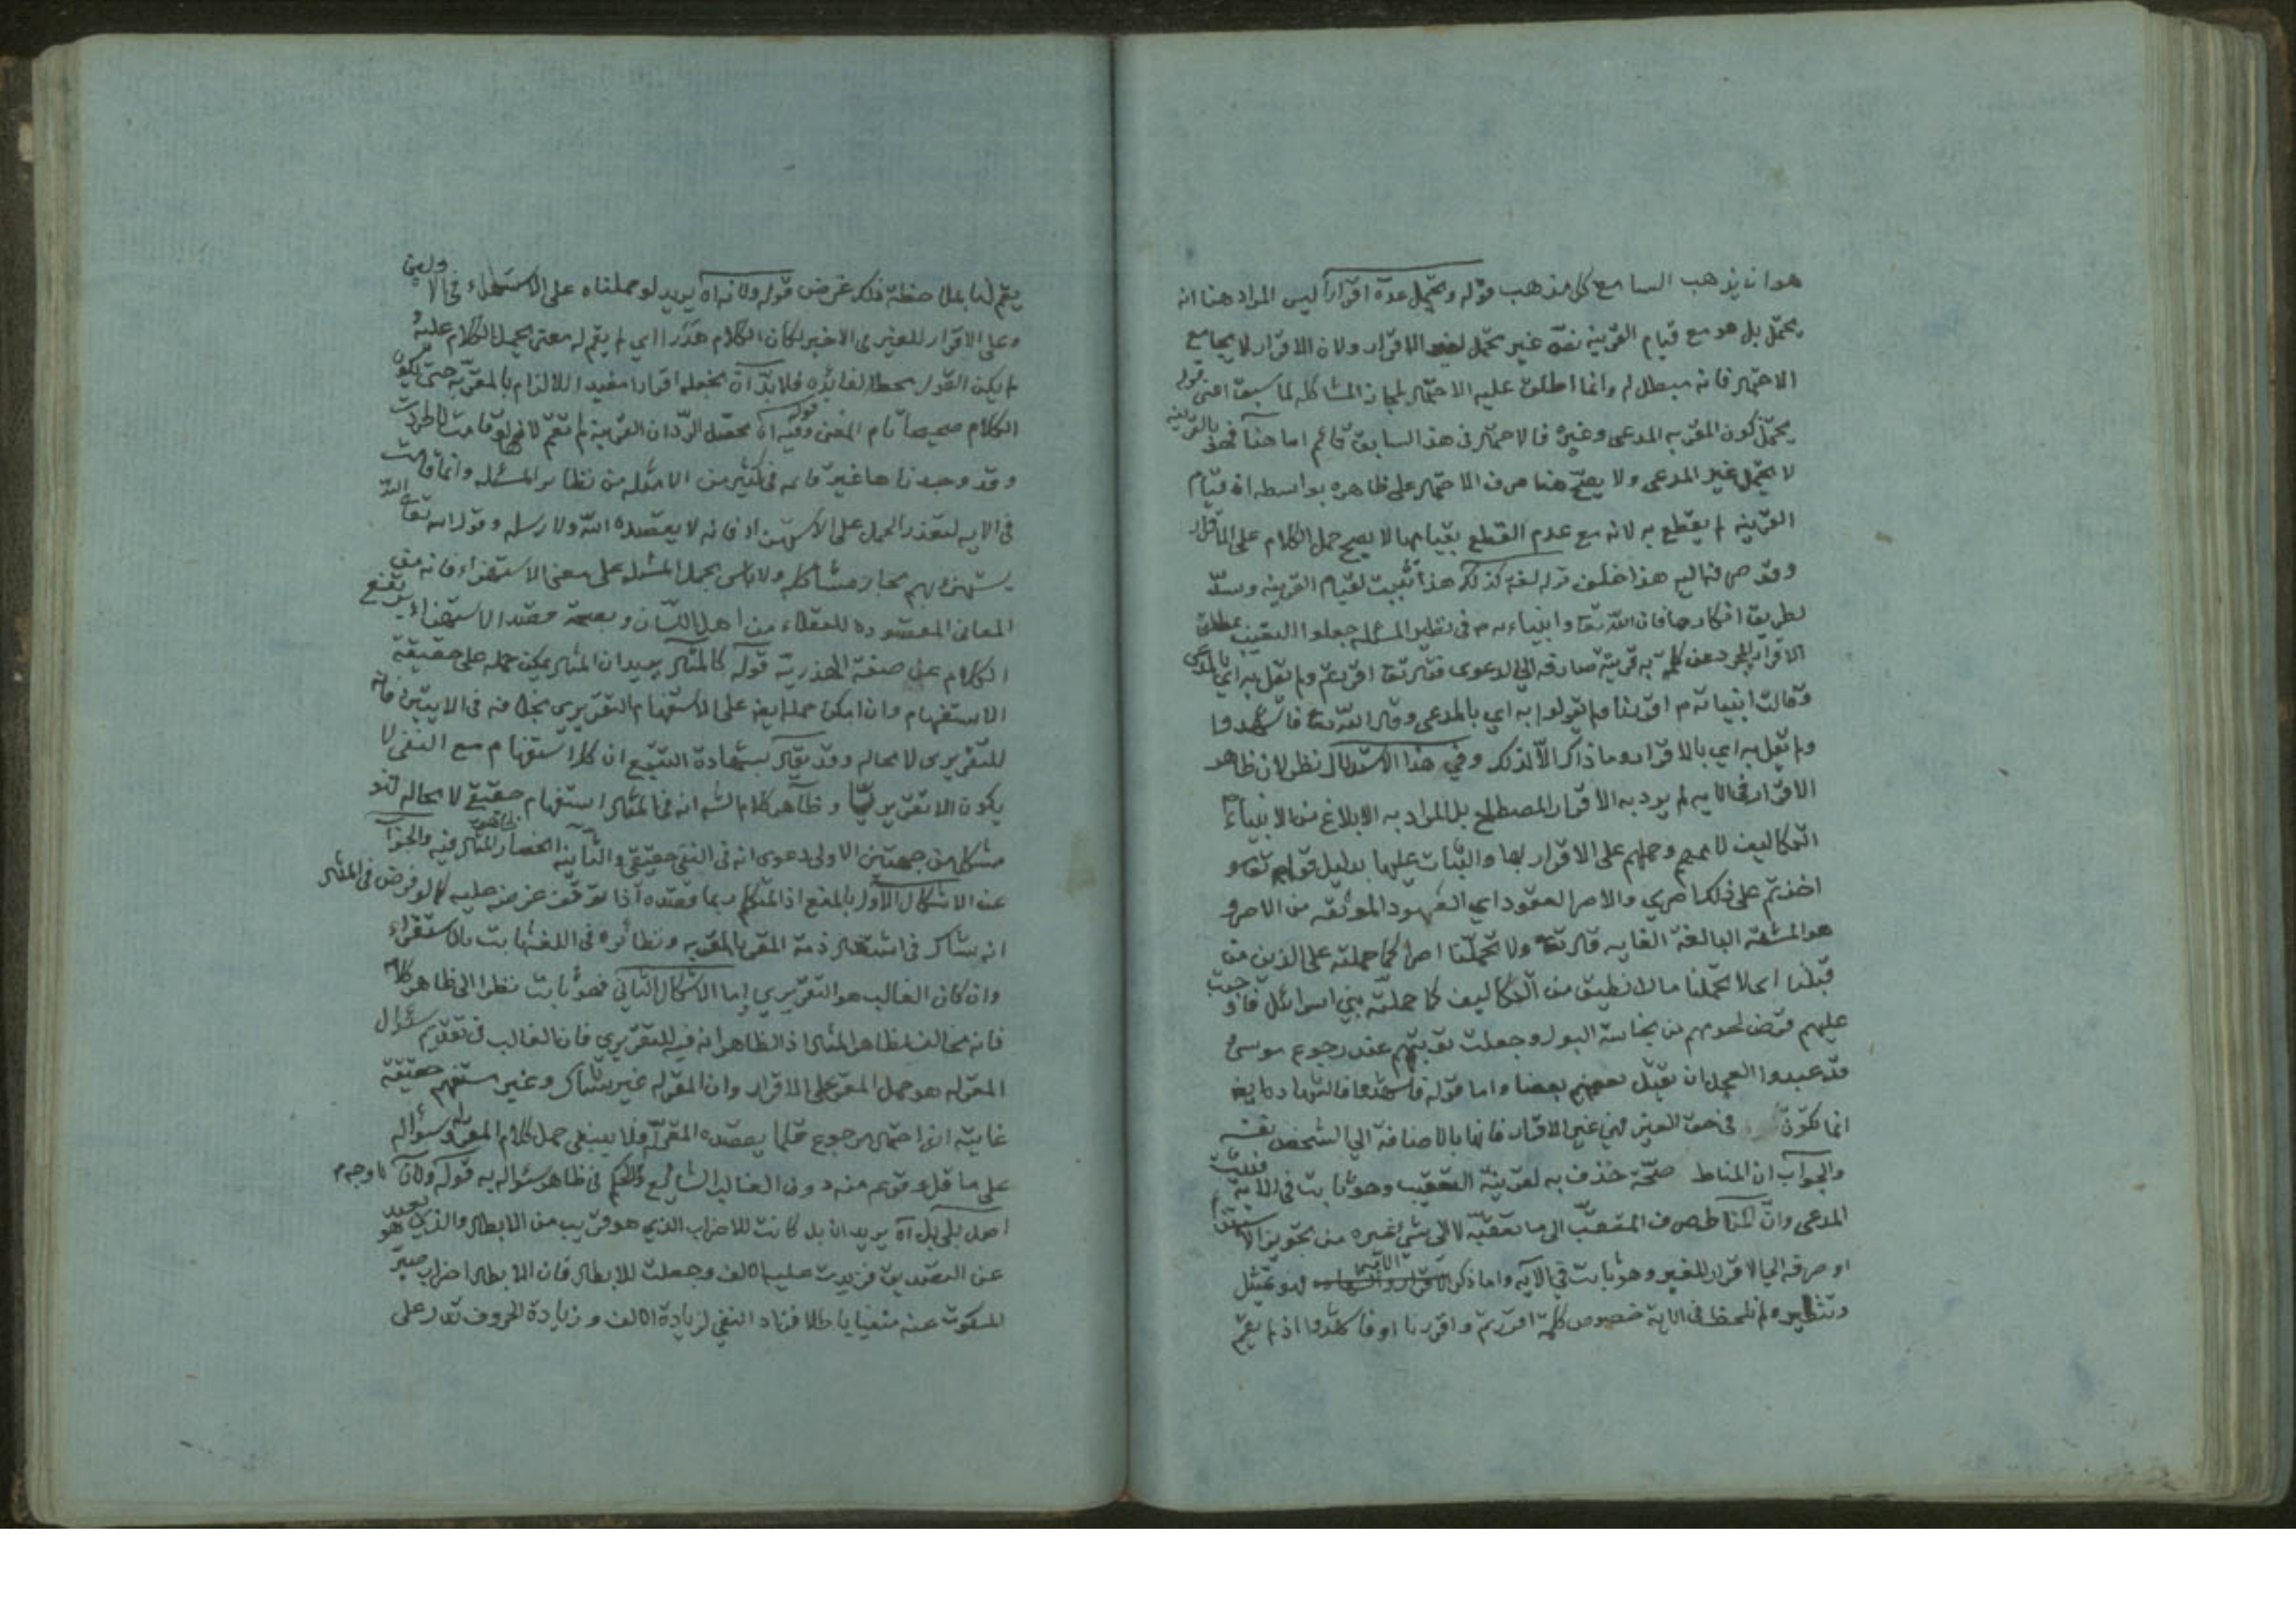 هو ان يذهب السامع كل مذهب قوله ويحتمل عدة اقرارا ليس المراد هنا انه
يحتمل بل هو مع قيام القرينة نص غير محتمل لغير الاقرار ولان الاقرار لا يجامع
الاحتمال فانه مبطل له وانما اطلق عليه الاحتمال لمجاز المشاكله لما سبق اعنى قوله
يحتمل كون المقر به المدعى وغيره فالاحتمال فى هذا السابق قائم اما هنا فهو بالقرينه
لا يحتمل غير المدعى ولا يصح هنا صرف الاحتمال على ظاهره بواسطه ان قيام
القرينه لم يقطع به لانه مع عدم القطع بقيامها لا يصح حمل الكلام على الاقرار
وقد صرفنا اليه هذا خلف قوله لغة كذلك هذا تثبيت لقيام القرينه وسدّ
لطريق انكارها فان الله تعا وانبياءه فى نظير المسئله جعلوا التعقيب بمطلق
الاقرار المجرد عن كلمة به قرينة صارفه الى الدعوى فقال تعا اقررتم ولم يقل به اي بالمدعى
وقالت انبيائه م اقررنا ولم يقولوا به اي بالمدعى وقال الله تعا فاشهدوا
ولم يقل به اي بالاقرار وما ذاك الا لذلك وفي هذا الاستدلال نظر لان ظاهر
الاقرار فى الايه لم يرد به الاقرار المصطلح بل المراد به الابلاغ من الانبياء
التكاليف لاممهم وحملهم على الاقرار بها والثبات عليها بدليل قوله تعا و
اخذتم على ذلكم اصري والاصر العقود اي العهود الموثقه من الاصر و
هو المشقة البالغة الغايه قال تعا ولا تحمل علينا اصرا كما حملته على الذين من
قبلنا اى لا تحملنا ما لا نطيق من التكاليف كما حملته بني اسرائيل فاوجبت
عليهم قرض لحومهم من نجاسة البول وجعلت توبتهم عند رجوع موسى
قد عبدوا العجل ان يقتل بعضهم بعضا واما قوله فاشهدوا فالشهادة ايضا
انما تكون فى حق الغير فهي غير الاقرار فانها بالاضافة الى الشخص نفسه
والجواب ان المناط صحّة حذف به لقرينة التعقيب وهو ثابت فى الاية
المدعى وان المناط صرف المتعقب الى ما تعقبه لا الى شئ غيره من تجويز الاستهزاء
او صرفه الى الاقرار للغير وهو ثابت فى الآيه واما ذكر الآية فهو تمثيل
وتنظير ولم نلحظ فى الاية خصوص كلمة اقررتم واقررنا او فاشهدوا اذ لم يقم
يقم لنا بملاحظة ذلك غرض قوله ولانه اه يريد لو حملناه على الاستهزاء فى الاولين
وعلى الاقرار للغير فى الاخير لكان الكلام هذرا اي لم يقم له معنى يحمل الكلام عليه
لم يكن القول محطا لفائدة فلا بد ان نجعله اقرارا مفيدا للالزام بالمقر به حتى يكون
الكلام صحيحا تام المعنى قوله وفيه اه محصل الرد ان القرينة لم تقم لانها لو قامت لاطردت
وقد وجدناها غير قائمه فى كثير من الامثله من نظائر المسئله وانما قامت
فى الايه لتعذر الحمل على الاستهزاء فانه لا يقصده الله ولا رسله وقوله تعا الله
يستهزئ بهم مجاز مشاكله ولا باس بحمل المسئله على معنى الاستهزاء فانه من
المعانى المقصوده للعقلاء من اهل اللسان وبصحة قصد الاستهزاء يرتفع
الكلام عن صفة الهذرية قوله كالمثال يريد ان المثال يمكن حمله على حقيقة
الاستفهام وان امكن حمله ايضا على الاستفهام التقريري بخلافه فى الايتين فانه
للتقريرى لا محاله وقد يقال بشهادة التتبع ان كل استفهام مع النفى لا
يكون الا تقريريّا وظاهر كلام الشه انه فى المثال استفهام حقيقي لا محاله فهو
مشكل من جهتين الاولى دعوى انه فى النفى حقيقي والثانيه انحصار المثال فيه والجواب
عن الاشكال الاول بالمنع اذ المتكلم ربما قصده اذا توقف غرضه عليه كما لو فرض فى المثال
انه شاك فى اشتغال ذمة المقر بالمقر به ونظائره فى اللغة ثابت بالاستقراء
وان كان الغالب هو التقريري اما الاشكال الثانى فهو ثابت نظرا الى ظاهر كلامه
فانه مخالف لظاهر المثال اذ الظاهر انه فيه للتقريري فان الغالب فى تقديم سؤال
المقر له هو حمل المقر على الاقرار وان المقر له غير شاك وغير مستفهم حقيقة
غاية انه احتمال مرجوح قلما يقصده المقر له فلا ينبغى حمل كلام المقر له وسؤاله
على ما قل وقوعه منه دون الغالب الشايع والحكم فى ظاهر سؤاله به قوله ولان
اصل بلى بل اه يريد ان بل كانت للاضراب الذي هو قريب من الابطال والذي هو بعيد
عن التصديق فزيدت عليها الالف وجعلت للابطال فان الابطال اضراب صير
المسكوت عنه منفيا باطلا فزاد النفى لزيادة الالف وزيادة الحروف تدل على